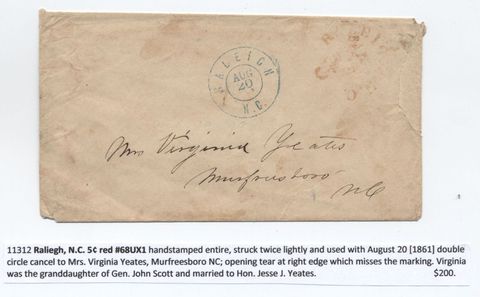 RALEIGH
AUG
20
N.C.
Mrs Virginia Yeates
Murfreesboro
NC
11312 Raliegh, N.C. 5¢ red #68UX1 handstamped entire, struck twice lightly and used with August 20 [1861] double
circle cancel to Mrs. Virginia Yeates, Murfreesboro NC; opening tear at right edge which misses the marking. Virginia
was the granddaughter of Gen. John Scott and married to Hon. Jesse J. Yeates. $200.